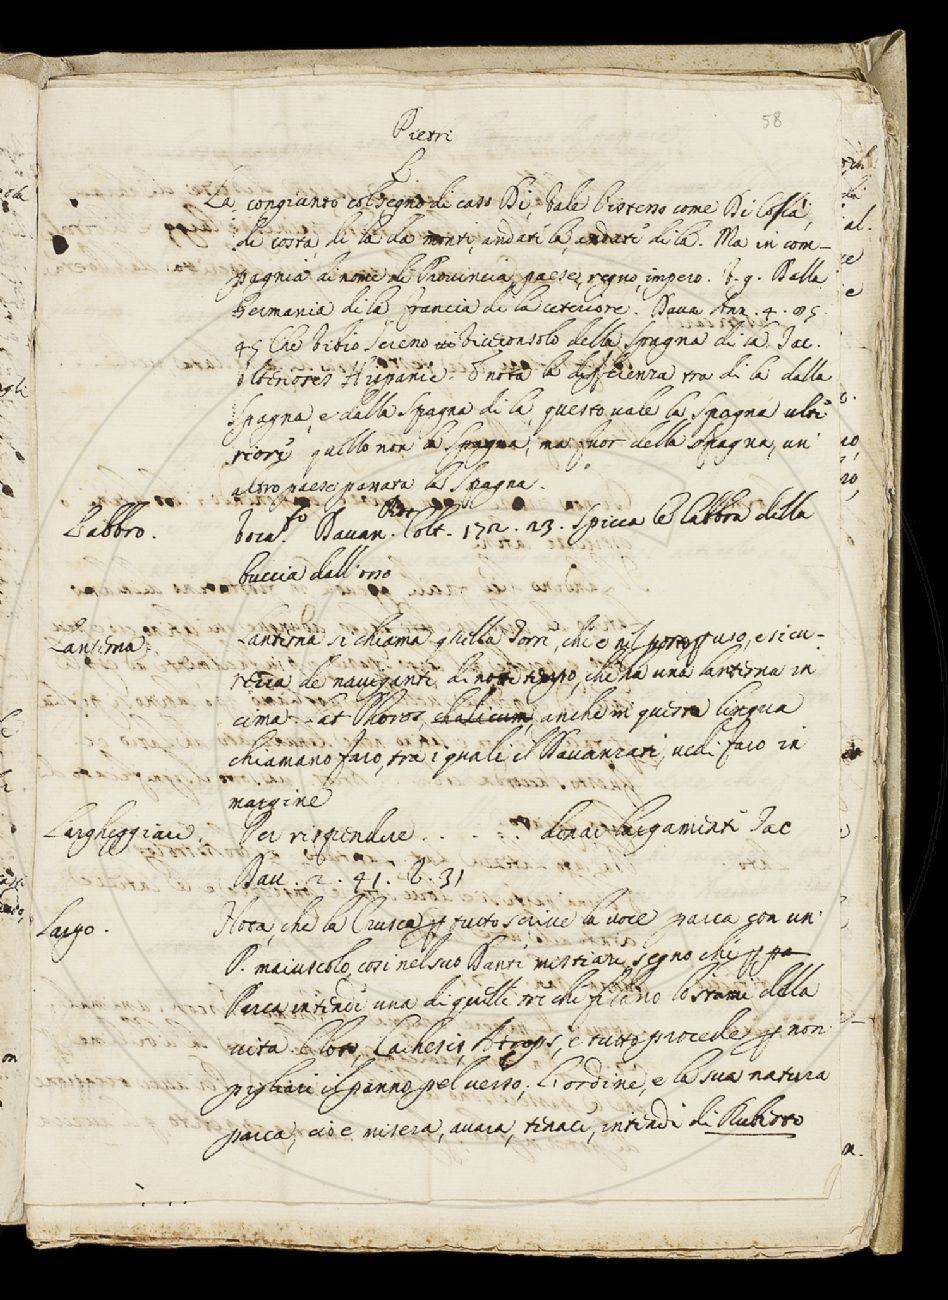 58
Pietri
L.
La congiunto col segno di caso Di, vale l'istesso come Di Costà,
di costa, di là da monti, andati là, andati di là. Ma in com-
pagnia di nome di Provincia, paese, regno, impero. V. g. Dalla
Germania di là Francia di là citeriore. Dava Ann. 4. 85.
45 Che Vibio Sereno Viceconsolo della Spagna di là. Tac.
Ulterioris Hispanie. E nota la differenza tra di là dalla
Spagna, e dalla Spagna di là, questo vale la Spagna ulte
riore quello non la Spagna, ma fuor della Spagna, un'
altro paese passata la Spagna.
Labbro. Davan. Colt. 172. 23. Spicca le labbra della
buccia dall'orro
Lanterna. Lanterna si chiama quella Torre, che è nel porto per uso, e sicu-
rezza de naviganti di notte tempo, che hà una lanterna in
cima - at Pharos, anche in questa lingua
chiamano faro, tra i quali il Davanzati, vedi faro in
margine
Largheggiare. Per rispendere . . . . donar largamente Tac
Dav. 2. 41. 8. 31
Largo. Nota, che la Crusca p tutto scrive la voce parca con un'
P. maiuscolo, così nel suo Dante mettiare segno che
Parca intende una di quelle tre che filano lo stame della
vita Cloto, Lachesis, Atropos, e tutto procede p non
pigliare il panno pel verso, L'ordine, e la sua natura
parca, cioè misera, avara, tenace, intende di Ruberto